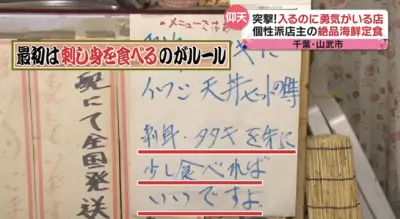 仰天
突撃!入るのに勇気がいる店
個性派店主の絶品海鮮定食
千葉・山武市
最初は刺し身を食べるのがルール
メニュー
イワシ天丼セットの時
刺身・タタキを先に
少し食べれば
いいですよ
配にて全国発送